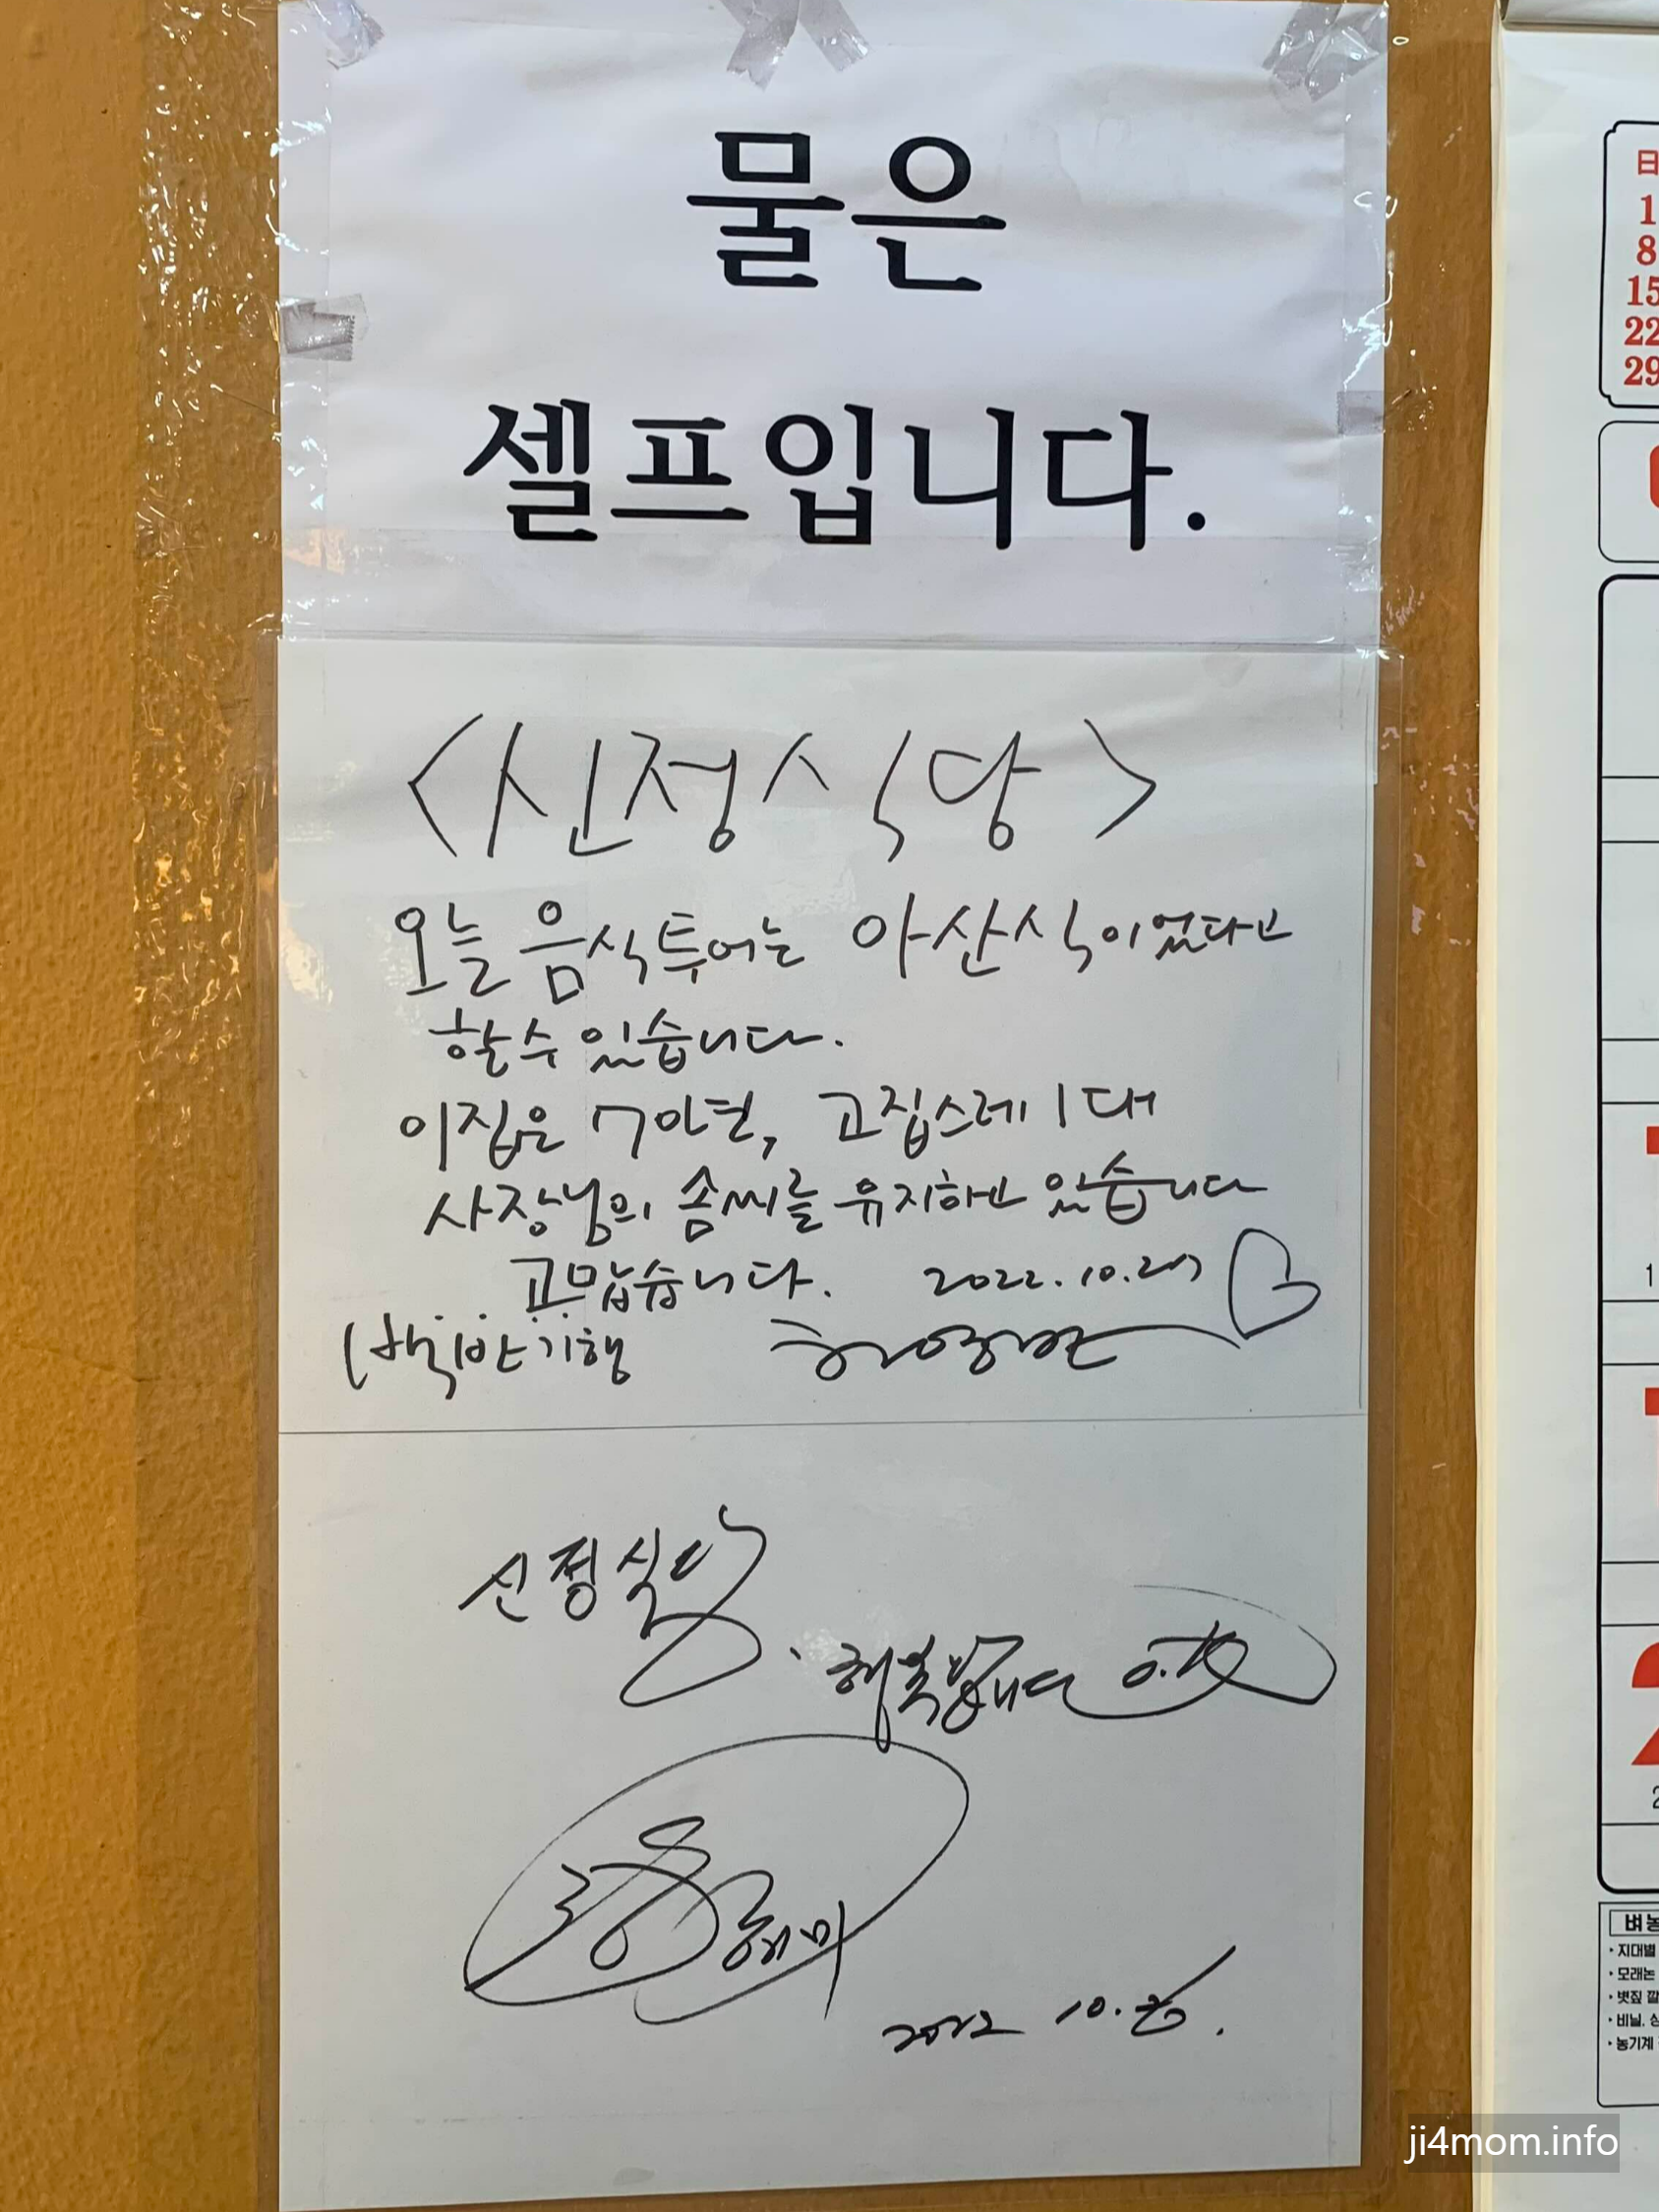 물은
셀프입니다.
<신정식당>
오늘 음식투어는 아산식이었다고
할 수 있습니다.
이집은 70년, 고집스레 1대
사장님의 솜씨를 유지하고 있습니다
고맙습니다. 2022.10.27
백반기행 허영만
신정식당
행복합니다
혜미
2022 10.
日
1
8
15
22
29
벼농
・지대별
・모래논
・볏짚 깔
・비닐, 상
・농기계
ji4mom.info